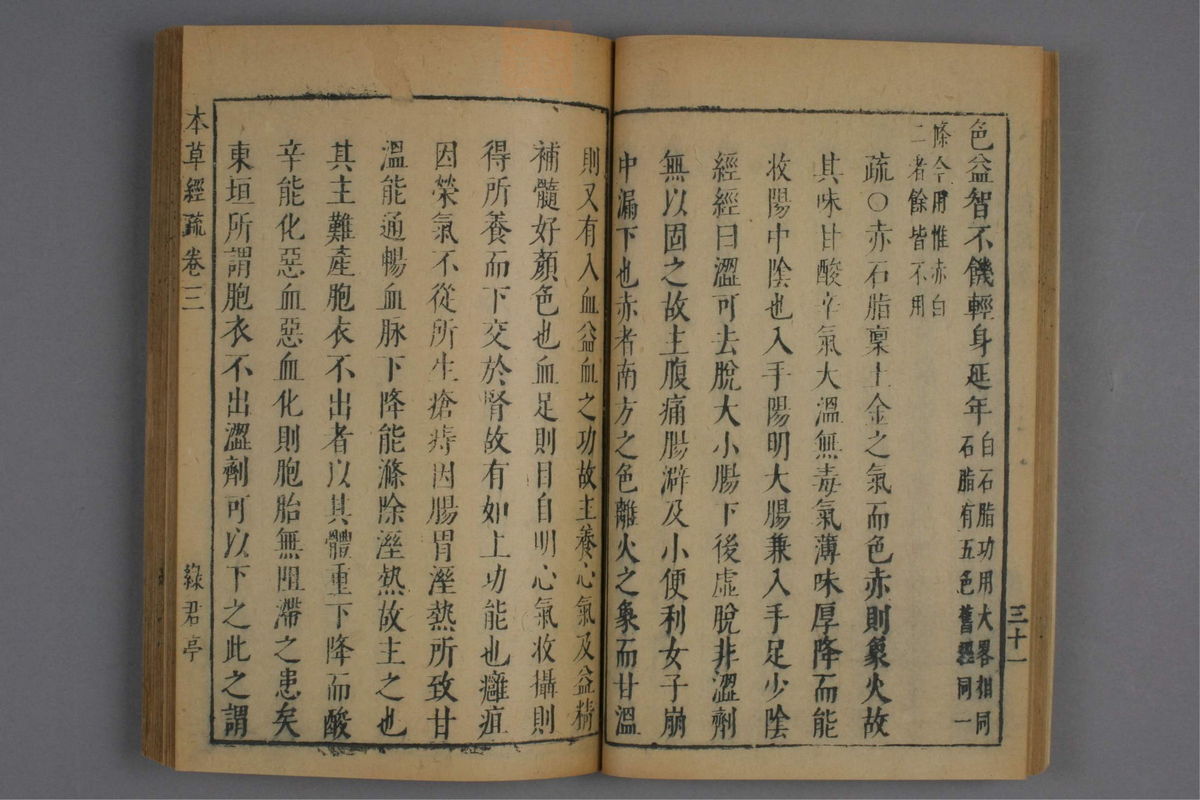 色益智不饑輕身延年白石脂功用大畧相同
石脂有五色舊經同一
條今用惟赤白
二者餘皆不用
疏○赤石脂稟土金之氣而色赤則象火故
其味甘酸辛氣大溫無毒氣薄味厚降而能
收陽中陰也入手陽明大腸兼入手足少陰
經經曰澀可去脫大小腸下後虛脫非澀劑
無以固之故主腹痛腸澼及小便利女子崩
中漏下也赤者南方之色離火之象而甘溫
三十一
則又有入血益血之功故主養心氣及益精
補髓好顏色也血足則目自明心氣收攝則
得所養而下交於腎故有如上功能也癰疽
因榮氣不從所生瘡痔因腸胃溼熱所致甘
溫能通暢血脉下降能滌除溼熱故主之也
其主難產胞衣不出者以其體重下降而酸
辛能化惡血惡血化則胞胎無阻滯之患矣
東垣所謂胞衣不出澀劑可以下之此之謂
本草經疏卷三
綠君亭